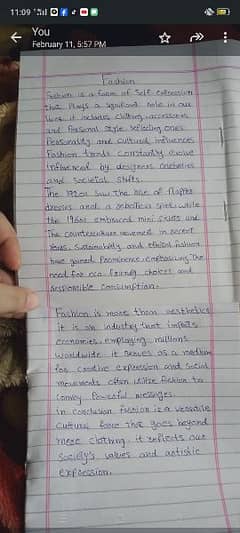 11:09
You
February 11, 5:57 PM
Fashion
Fashion is a form of Self expression
that Plays a significant role in our
lives. it includes clothing, accessories
and Personal style reflecting ones
Personality and cultural influences
Fashion trends constantly evolve
influenced by designers celebrities
and societal shifts.
The 1920s saw the rise of flapper
dresses and a rebellious spirit while
the 1960s embraced mini skirts and
The counterculture movement in recent
years. Sustainability and ethical fashion
have gained Prominence, emphasizing The
need for eco friendly choices and
responsible consumption.
Fashion is more than aesthetics
it is an industry that impacts
economies, employing millions
worldwide it serves as a medium
for creative expression and social
movements often utilize fashion to
convey Powerful messages.
In conclusion fashion is a versatile
cultural force That goes beyond
mere clothing. it reflects our
society's values and artistic
expression.